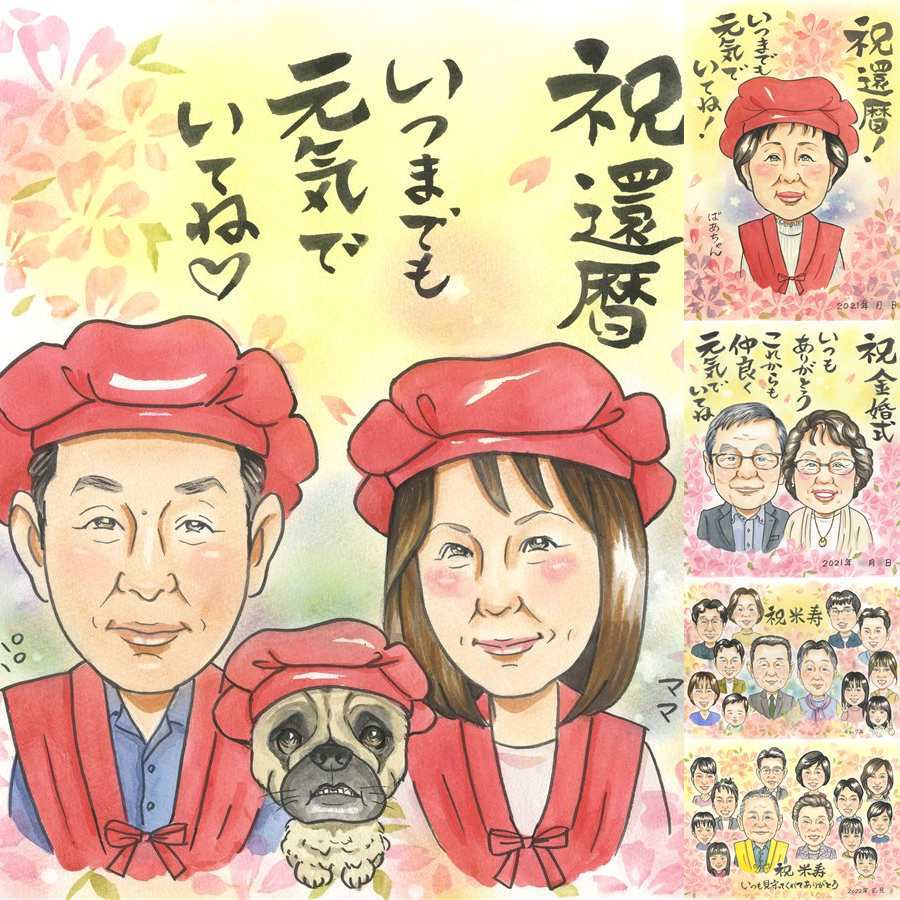 祝還暦
いつまでも
元気で
いてね♡
パパ
ママ
祝還暦!
いつまでも
元気で
いてね!
ばあちゃん
2021年 月 日
祝金婚式
いつも
ありがとう
これからも
仲良く
元気で
いてね
2021年 月 日
祝米寿
祝米寿
いつも見守ってくれてありがとう
2022年 月